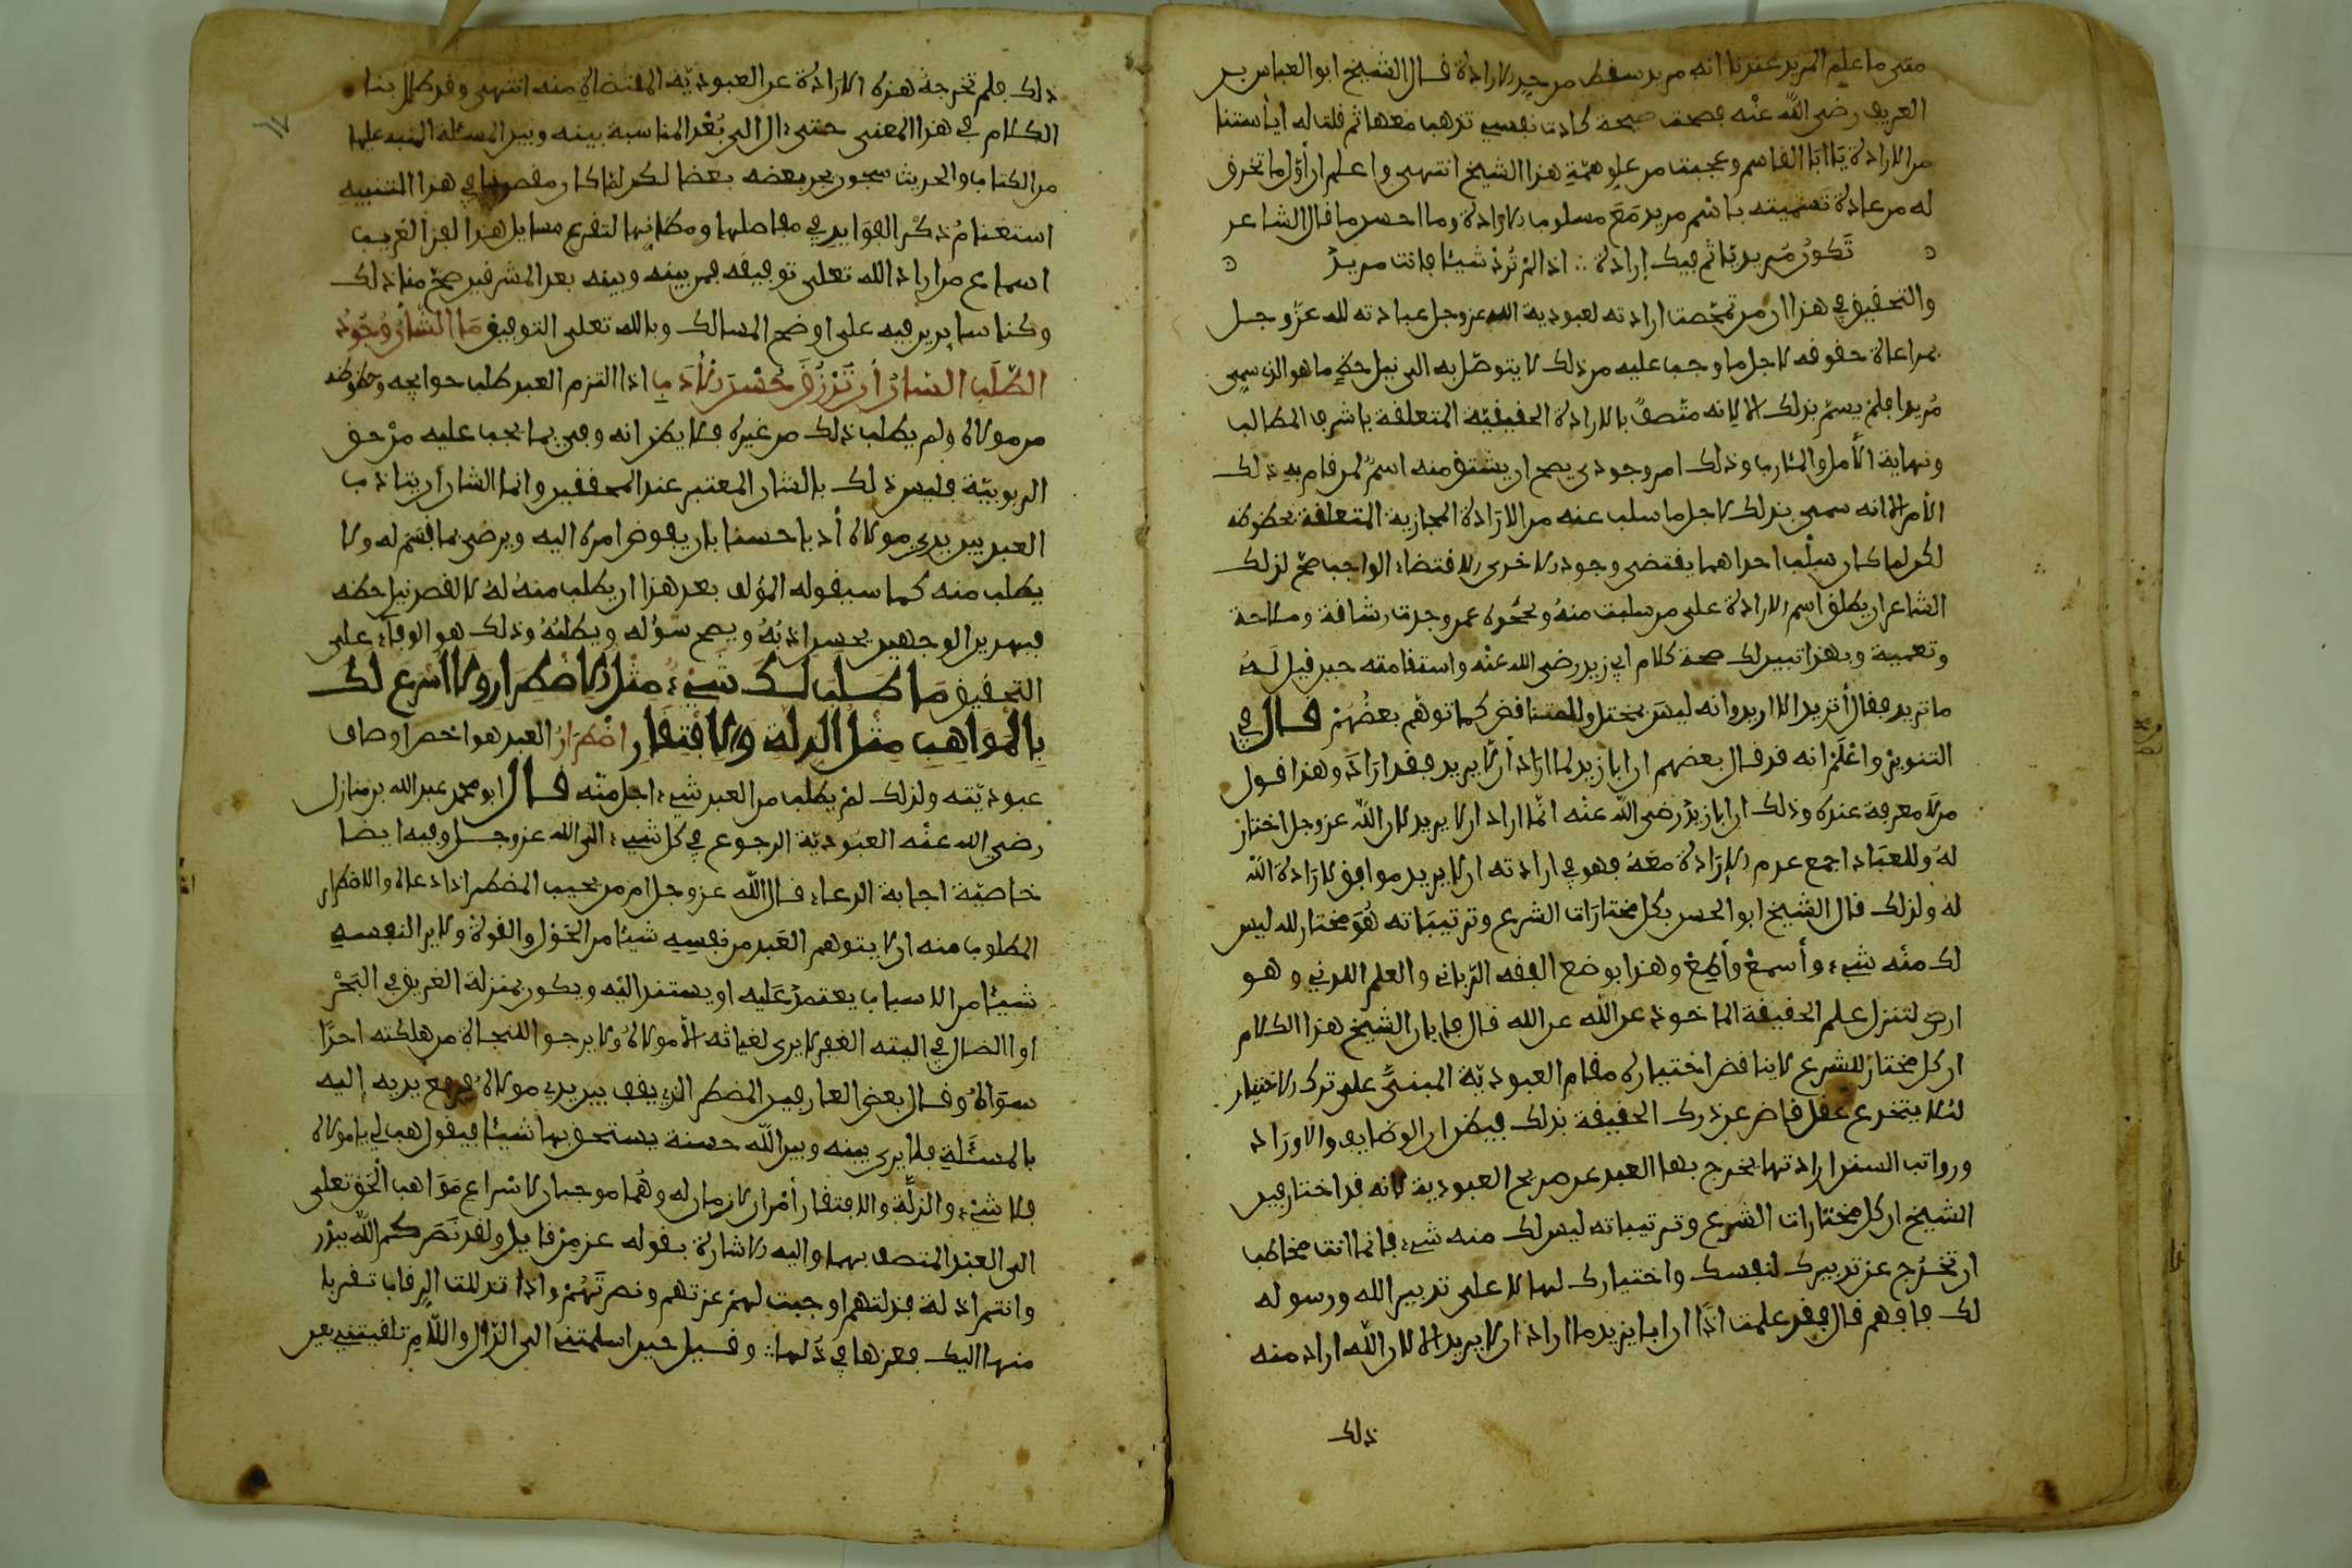 متى ما علم المريد عندنا انه مريد سقط من حد الارادة قال الشيخ ابو العباس بن
العريف رضي الله عنه فصحت صيحة كادت نفسي تذهب معها ثم قلت له ايأستنا
من الارادة يا ابا القاسم وعجبت من علو همة هذا الشيخ انتهى واعلم ان أول ما تخرق
له من عادة تسميته باسم مريد مع مسلوب الارادة وما احسن ما قال الشاعر
تكون مريدا ثم فيك إرادة ∴ اذا لم ترد شيئا فانت مريد
والتحقيق في هذا ان من تمحصت ارادته لعبودية الله عز وجل عبادته لله عز وجل
بمراعاة حقوقه لاجل ما وجب عليه من ذلك لا يتوصل به الى نيل حظ ما هو الذي سمي
مريدا فلم يسم بذلك الا لانه متصف بالارادة الحقيقية المتعلقة باشرف المطالب
ونهاية الأمل والمئارب وذلك امر وجودي يصح ان يشتق منه اسم لمن قام به ذلك
الأمر الا انه سمى بذلك لاجل ما سلب عنه من الارادة المجازية المتعلقة بحظوظه
لكن لما كان سلب احداهما يقتضي وجود الاخرى الاقتضاء الواجب صح لذلك
الشاعر ان يطلق اسم الارادة على من سلبت منه ونحوه عمن وجدت رشاقة وملاحة
وتعمية وبهذا تبين لك صحة كلام ابي زيد رضي الله عنه واستقامته حين قيل له
ما تريد فقال أريد الا اريد وانه ليس بمختل ولا متناقض كما توهم بعضهم قال في
التنوير واعلم انه قد قال بعضهم ان ابا زيد لما اراد أن لا يريد فقد اراد وهذا قول
من لا معرفة عنده وذلك ان ابا زيد رضي الله عنه انما اراد ان لا يريد لان الله عز وجل اختار
له وللعباد اجمع عدم الارادة معه فهو في ارادته ان لا يريد موافق لارادة الله
له ولذلك قال الشيخ ابو الحسن بكل مختارات الشرع وترتيباته هو مختار لله ليس
لك منه شيء وأسمع وأطع وهذا بوضع الفقه الرباني والعلم اللدني وهو
ارض لتنزل علم الحقيقة الماخوذ عن الله عز الله قال فابان الشيخ هذا الكلام
ان كل مختار للشرع لا يناقض اختياره مقام العبودية المبني على ترك الاختيار
لئلا ينخدع عقل قاصر عن درك الحقيقة بذلك فيظن ان الوظايف والاوراد
ورواتب السنن ارادتها يخرج بها العبد عن صريح العبودية لانه قد اختار فبين
الشيخ ان كل مختارات الشرع وترتيباته ليس لك منه شيء فانما انت مخاطب
ان تخرج عن تدبيرك لنفسك واختيارك لها لا على تدبير الله ورسوله
لك فافهم قال فقد علمت اذا ان ابا يزيد ما اراد ان لا يريد الا لان الله اراد منه
ذلك
ذلك فلم تخرجه هذه الارادة عن العبودية المقتضاة منه انتهى وقد طال بنا
الكلام في هذا المعنى حتى ءال الى بعد المناسبة بينه وبين المسئلة المنبه عليها
من الكتاب والحديث شجون يجر بعضه بعضا لكن لما كان مقصودنا في هذا التنبيه
استغنام ذكر الفوايد في مفاصلها ومظانها لتفرع مسايل هذا الفن الغريب
اسماع من اراد الله تعلى توفيقه فمن بينه وبينه بعد المشرقين صح منا ذلك
وكنا سايرين فيه على اوضح المسالك وبالله تعلى التوفيق ما الشأن وجود
الطلب الشان أن ترزق حسن الادب اذا التزم العبد طلب حوايجه وحظوظه
من مولاه ولم يطلب ذلك من غيره فلا يظن انه وفى بما يجب عليه من حق
الربوبية فليس ذلك بالشان المعتبر عند المحققين وانما الشان أن يتادب
العبد بين يدي مولاه أدبا حسنا بان يفوض امره اليه ويرضى بما قسم له ولا
يطلب منه كما سيقوله المؤلف بعد هذا ان يطلب منه له لا لقصد نيل حظه
فبهذين الوجهين يحسن ادبه ويصح سؤله ويطلبه وذلك هو الوفاء على
التحقيق ما طلب لك شيء مثل الاضطرار ولا اسرع لك
بالمواهب مثل الذلة والافتقار اضطرار العبد هو اخص اوصاف
عبوديته ولذلك لم يطلب من العبد شيء اجل منه قال ابو محمد عبد الله بن منازل
رضي الله عنه العبودية الرجوع في كل شيء الى الله عز وجل وفيه ايضا
خاصية اجابة الدعاء قال الله عز وجل امن يجيب المضطر اذا دعاه والاضطرار
المطلوب منه ان لا يتوهم العبد من نفسه شيئا من الحول والقوة ولا يرا لنفسه
شيئا من الاسباب يعتمد عليه او يستند اليه ويكون بمنزلة الغريق في البحر
او الضال في التيه القفر لا يرى لغياثه الا مولاه ولا يرجو للنجاة من هلكته احدا
سواه وقال بعض العارفين المضطر الذي يقف بين يدي مولاه فيرفع يديه إليه
بالمسئلة فلا يرى بينه وبين الله حسنة يستحق بها شيئا فيقول هب لي يا مولاي
بلا شيء والذلة والافتقار أمران لازمان له وهما موجبان لاسراع مواهب الحق تعلى
الى العبد المتصف بهما واليه الاشارة بقوله عز من قايل ولقد نصركم الله ببدر
وانتم اذلة فذلتهم اوجبت لهم عزتهم ونصرتهم واذا تذللت الرقاب تقربا
منها اليك فعزها في ذلها ∴ وقيل حين اسلمتني الى الذال واللام تلقيتني بعين